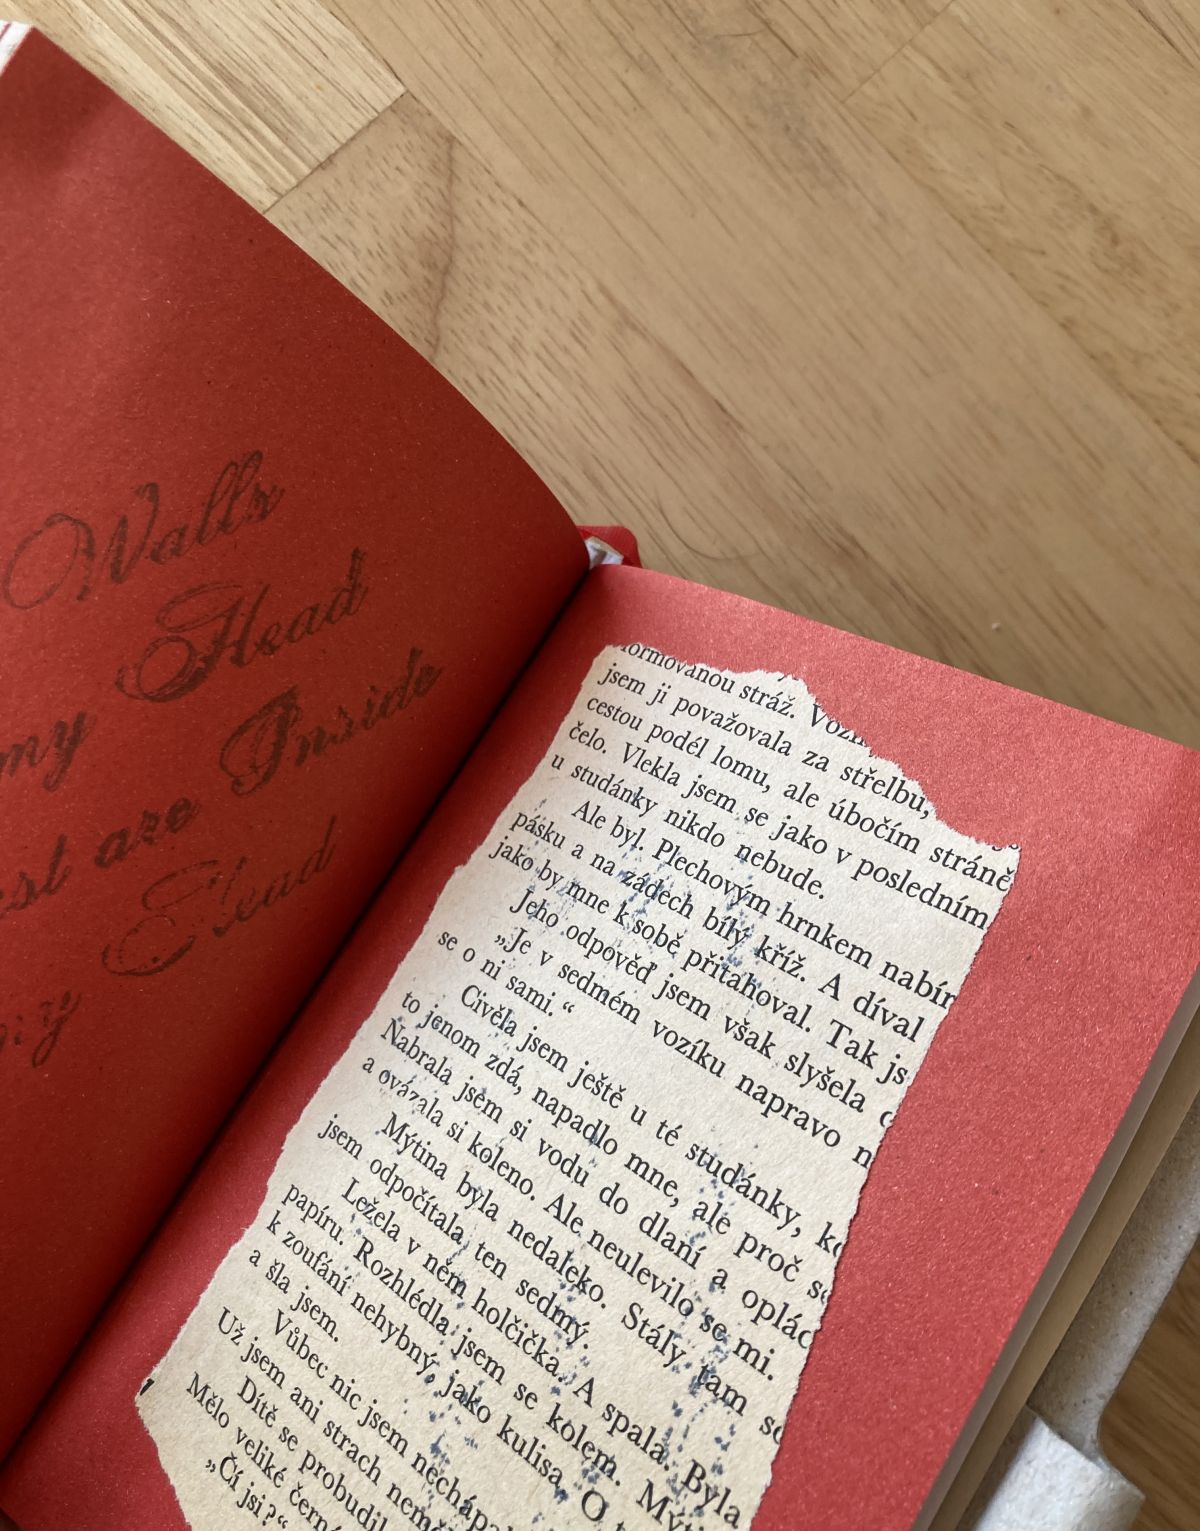 Walls
Head
my
are Inside
formovanou stráž.
jsem ji považovala za střelbu,
cestou podél lomu, ale úbočím stráně
čelo. Vlekla jsem se jako v posledním
u studánky nikdo nebude.
Ale byl. Plechovým hrnkem nabír
pásku a na zádech bílý kříž. A díval
jako by mne k sobě přitahoval. Tak js
Jeho odpověď jsem však slyšela
„Je v sedmém vozíku napravo n
se o ni sami.“
Civěla jsem ještě u té studánky, k
to jenom zdá, napadlo mne, ale proč s
Nabrala jsem si vodu do dlaní a oplác
a ovázala si koleno. Ale neulevilo se mi.
Mýtina byla nedaleko. Stály tam s
jsem odpočítala ten sedmý.
Ležela v něm holčička. A spala. Byla
papíru. Rozhlédla jsem se kolem. Mýti
k zoufání nehybný, jako kulisa. O
a šla jsem.
Vůbec nic jsem nechápal
Už jsem ani strach neměl
Dítě se probudil
Mělo veliké čern
„Čí jsi?“